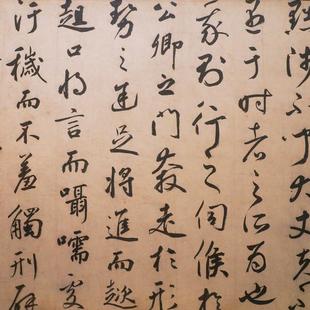 黜陟不聞大丈夫不
遇于時者之所為也
我則行之伺候於
公卿之門奔走於形
勢之途足將進而趑
趄口將言而囁嚅處
汙穢而不羞觸刑辟